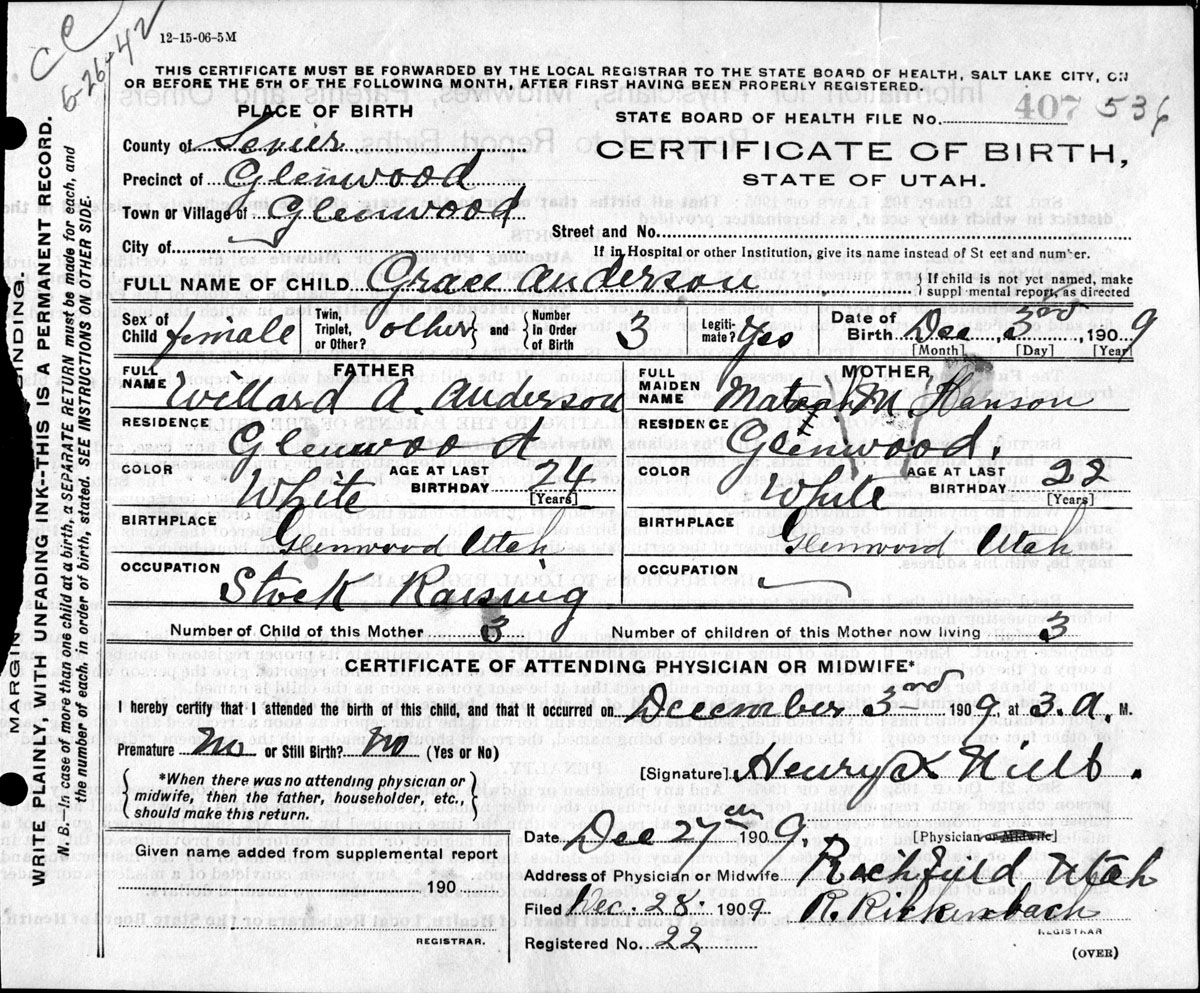 CC
6-26-42
12-15-06-5M
THIS CERTIFICATE MUST BE FORWARDED BY THE LOCAL REGISTRAR TO THE STATE BOARD OF HEALTH, SALT LAKE CITY, ON
OR BEFORE THE 5TH OF THE FOLLOWING MONTH, AFTER FIRST HAVING BEEN PROPERLY REGISTERED.
PLACE OF BIRTH
STATE BOARD OF HEALTH FILE No. 407 536
County of Sevier
CERTIFICATE OF BIRTH,
STATE OF UTAH.
Precinct of Glenwood
Town or Village of Glenwood
Street and No.
City of
If in Hospital or other Institution, give its name instead of St eet and number.
FULL NAME OF CHILD Grace Anderson
{ If child is not yet named, make
suppl mental report, as directed
Sex of Child female
Twin, Triplet, or Other? other } and { Number In Order of Birth 3
Legitimate? Yes
Date of Birth Dec 3rd, 1909
[Month] [Day] [Year]
FATHER
FULL NAME Willard A. Anderson
RESIDENCE Glenwood
COLOR White AGE AT LAST BIRTHDAY 24
[Years]
BIRTHPLACE
Glenwood Utah
OCCUPATION
Stock Raising
MOTHER
FULL MAIDEN NAME M. Hanson
RESIDENCE Glenwood.
COLOR White AGE AT LAST BIRTHDAY 22
[Years]
BIRTHPLACE
Glenwood Utah
OCCUPATION
Number of Child of this Mother 3 Number of children of this Mother now living 3
CERTIFICATE OF ATTENDING PHYSICIAN OR MIDWIFE*
I hereby certify that I attended the birth of this child, and that it occurred on December 3rd 1909, at 3. a. M.
Premature No or Still Birth? No (Yes or No)
{ *When there was no attending physician or
midwife, then the father, householder, etc.,
should make this return. }
[Signature] Henry
Date Dec 27th 1909.
[Physician or Midwife]
Given name added from supplemental report
190
REGISTRAR.
Address of Physician or Midwife Richfield Utah
Filed Dec. 28. 1909 R. Rickenbach
REGISTRAR
Registered No. 22
(OVER)
MARGIN NDING.
WRITE PLAINLY, WITH UNFADING INK--THIS IS A PERMANENT RECORD.
N. B.—In case of more than one child at a birth, a SEPARATE RETURN must be made for each, and
the number of each, in order of birth, stated. SEE INSTRUCTIONS ON OTHER SIDE.